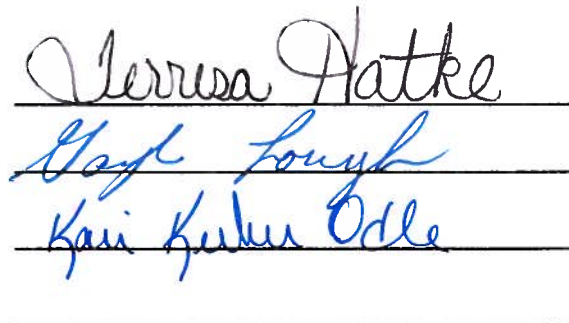 Terresa Hatke
Gayl Lough
Kari Odle